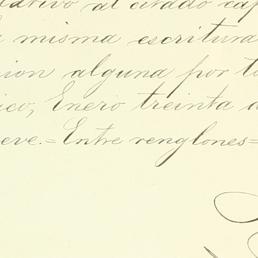 al citado
misma escritura
alguna por
Enero treinta
eve.=Entre renglones=